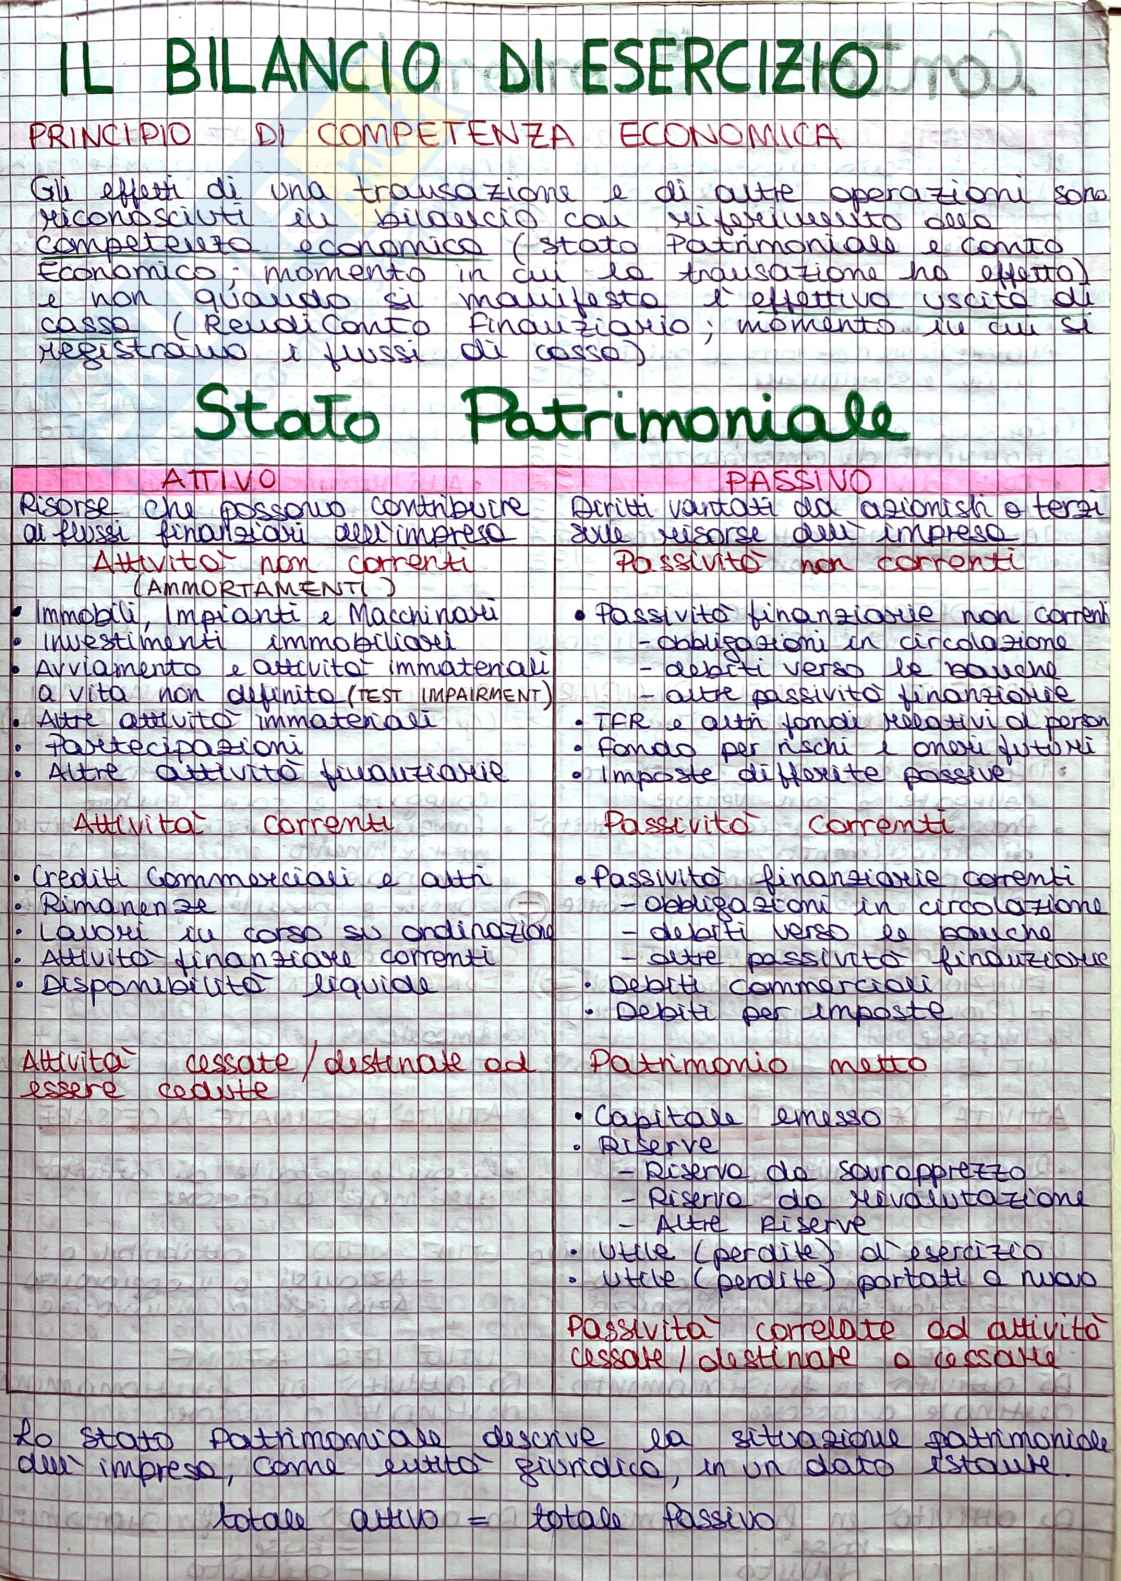 IL BILANCIO DI ESERCIZIO
PRINCIPIO DI COMPETENZA ECONOMICA
Gli effetti di una transazione e di altre operazioni sono
riconosciuti in bilancio con riferimento alla
competenza economica (Stato Patrimoniale e Conto
Economico; momento in cui la transazione ha effetto)
e non quando si manifesta l'effettiva uscita di
cassa (Rendiconto Finanziario; momento in cui si
registrano i flussi di cassa)
Stato Patrimoniale
ATTIVO
Risorse che possono contribuire
ai flussi finanziari dell'impresa
Attività non correnti
(AMMORTAMENTI)
• Immobili, Impianti e Macchinari
• Investimenti immobiliari
• Avviamento e attività immateriali
a vita non definita (TEST IMPAIRMENT)
• Altre attività immateriali
• Partecipazioni
• Altre attività finanziarie
Attività correnti
• Crediti Commerciali e altri
• Rimanenze
• Lavori in corso su ordinazione
• Attività finanziare correnti
• Disponibilità liquide
Attività cessate/destinate ad
essere cedute
PASSIVO
Diritti vantati da azionisti o terzi
sulle risorse dell'impresa
Passività non correnti
• Passività finanziarie non correnti
- obbligazioni in circolazione
- debiti verso le banche
- altre passività finanziarie
• TFR e altri fondi relativi al person
• Fondo per rischi e oneri futuri
• Imposte differite passive
Passività correnti
• Passività finanziarie correnti
- obbligazioni in circolazione
- debiti verso le banche
- altre passività finanziarie
• Debiti commerciali
• Debiti per imposte
Patrimonio netto
• Capitale emesso
• Riserve
- Riserva da sovrapprezzo
- Riserva da rivalutazione
- Altre Riserve
• Utile (perdite) d'esercizio
• Utile (perdite) portati a nuovo
Passività correlate ad attività
cessate/destinate a cessarie
Lo stato Patrimoniale descrive la situazione patrimoniale
dell'impresa, come entità giuridica, in un dato istante.
totale attivo = totale Passivo